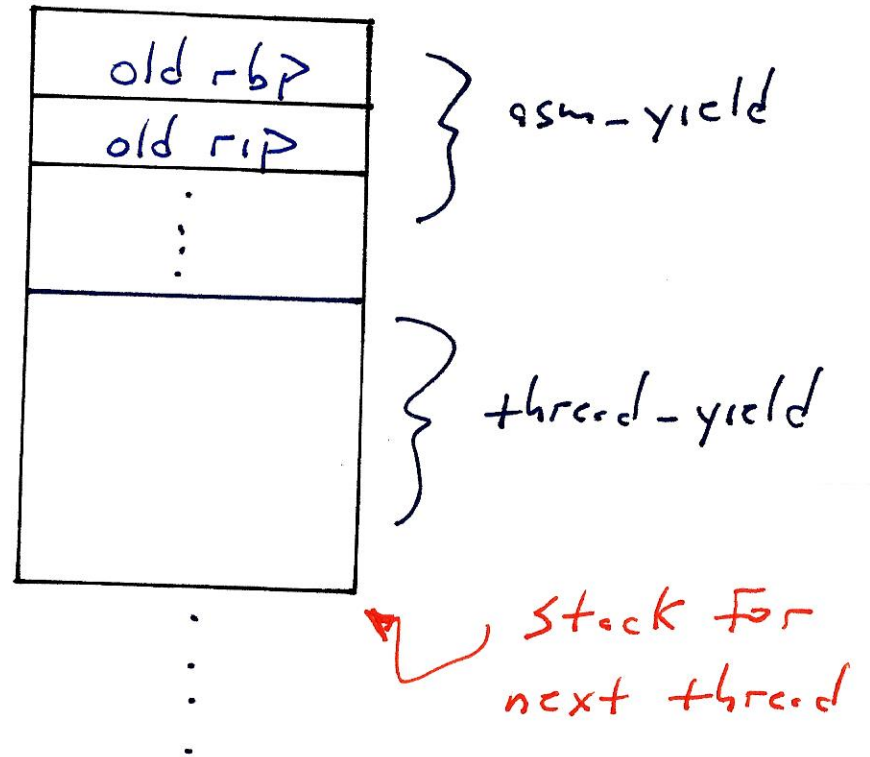 old rbp
old rip
asm-yield
thread-yield
stack for
next thread